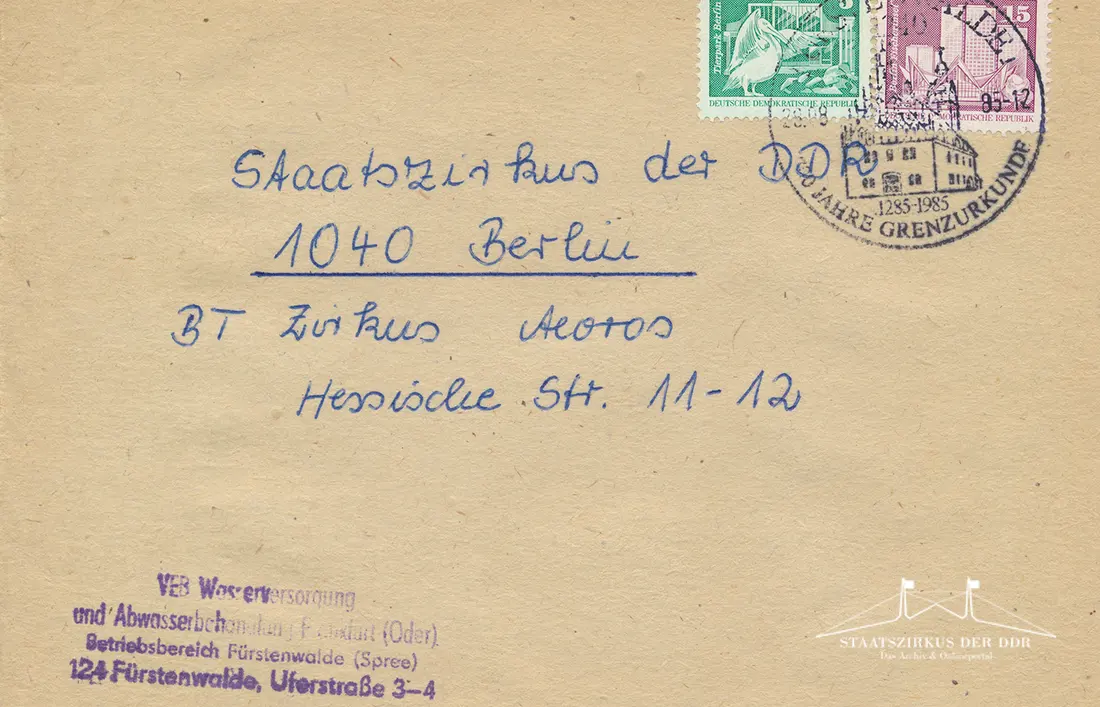 5
Tierpark Berlin
DEUTSCHE DEMOKRATISCHE REPUBLIK
15
DEMOKRATISCHE REPUBLIK
28.08
85-12
1285-1985
JAHRE GRENZURKUNDE
Staatszirkus der DDR
1040 Berlin
BT Zirkus Aeoros
Hessische Str. 11-12
VEB Wasserversorgung
und Abwasserbehandlung Frankfurt (Oder)
Betriebsbereich Fürstenwalde (Spree)
124 Fürstenwalde, Uferstraße 3-4
STAATSZIRKUS DER DDR
Das Archiv & Onlineportal